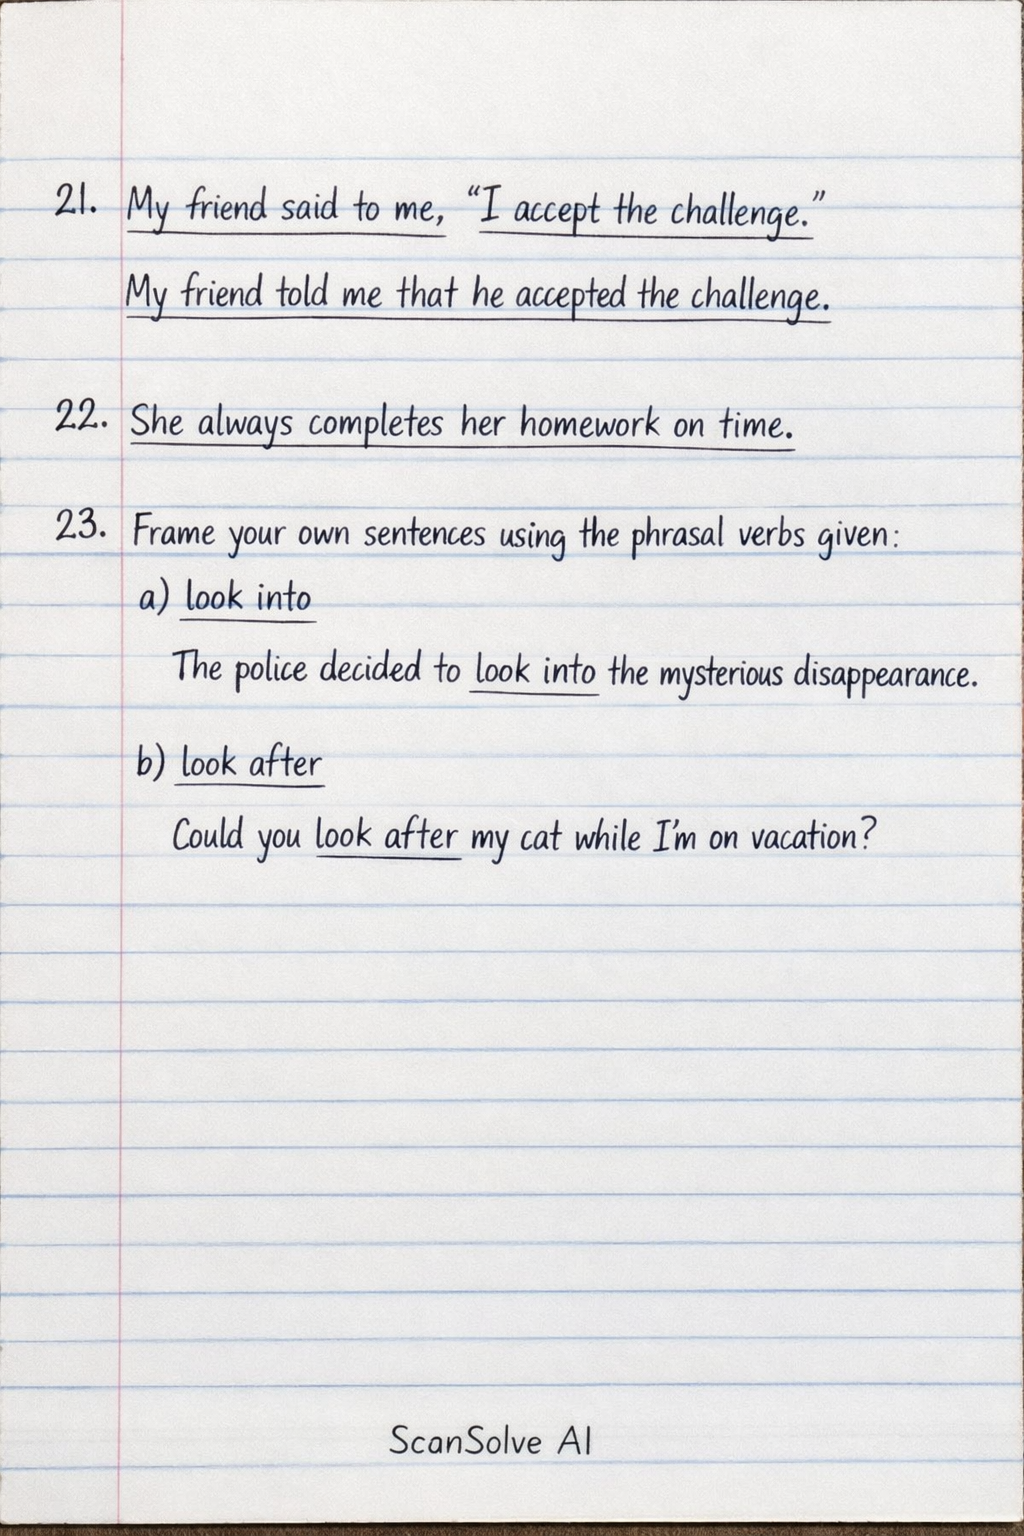 21. My friend said to me, “I accept the challenge.”
My friend told me that he accepted the challenge.
22. She always completes her homework on time.
23. Frame your own sentences using the phrasal verbs given:
a) look into
The police decided to look into the mysterious disappearance.
b) look after
Could you look after my cat while I'm on vacation?
ScanSolve AI